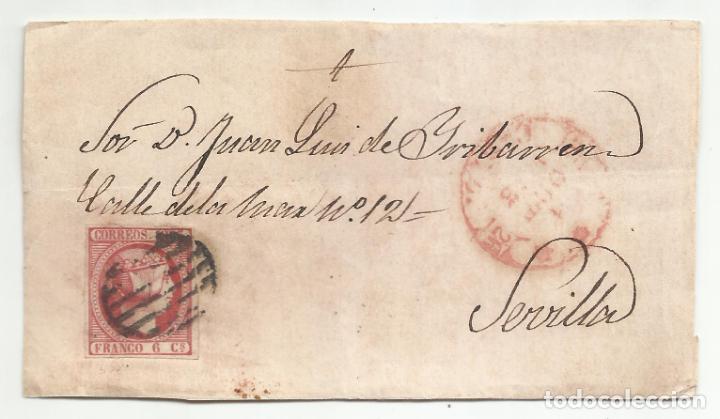 Sor D. Juan Luis de Yribarren
Calle de la Mar Nº. 12
Sevilla
CORREOS
FRANCO 6 Cs
todocoleccion